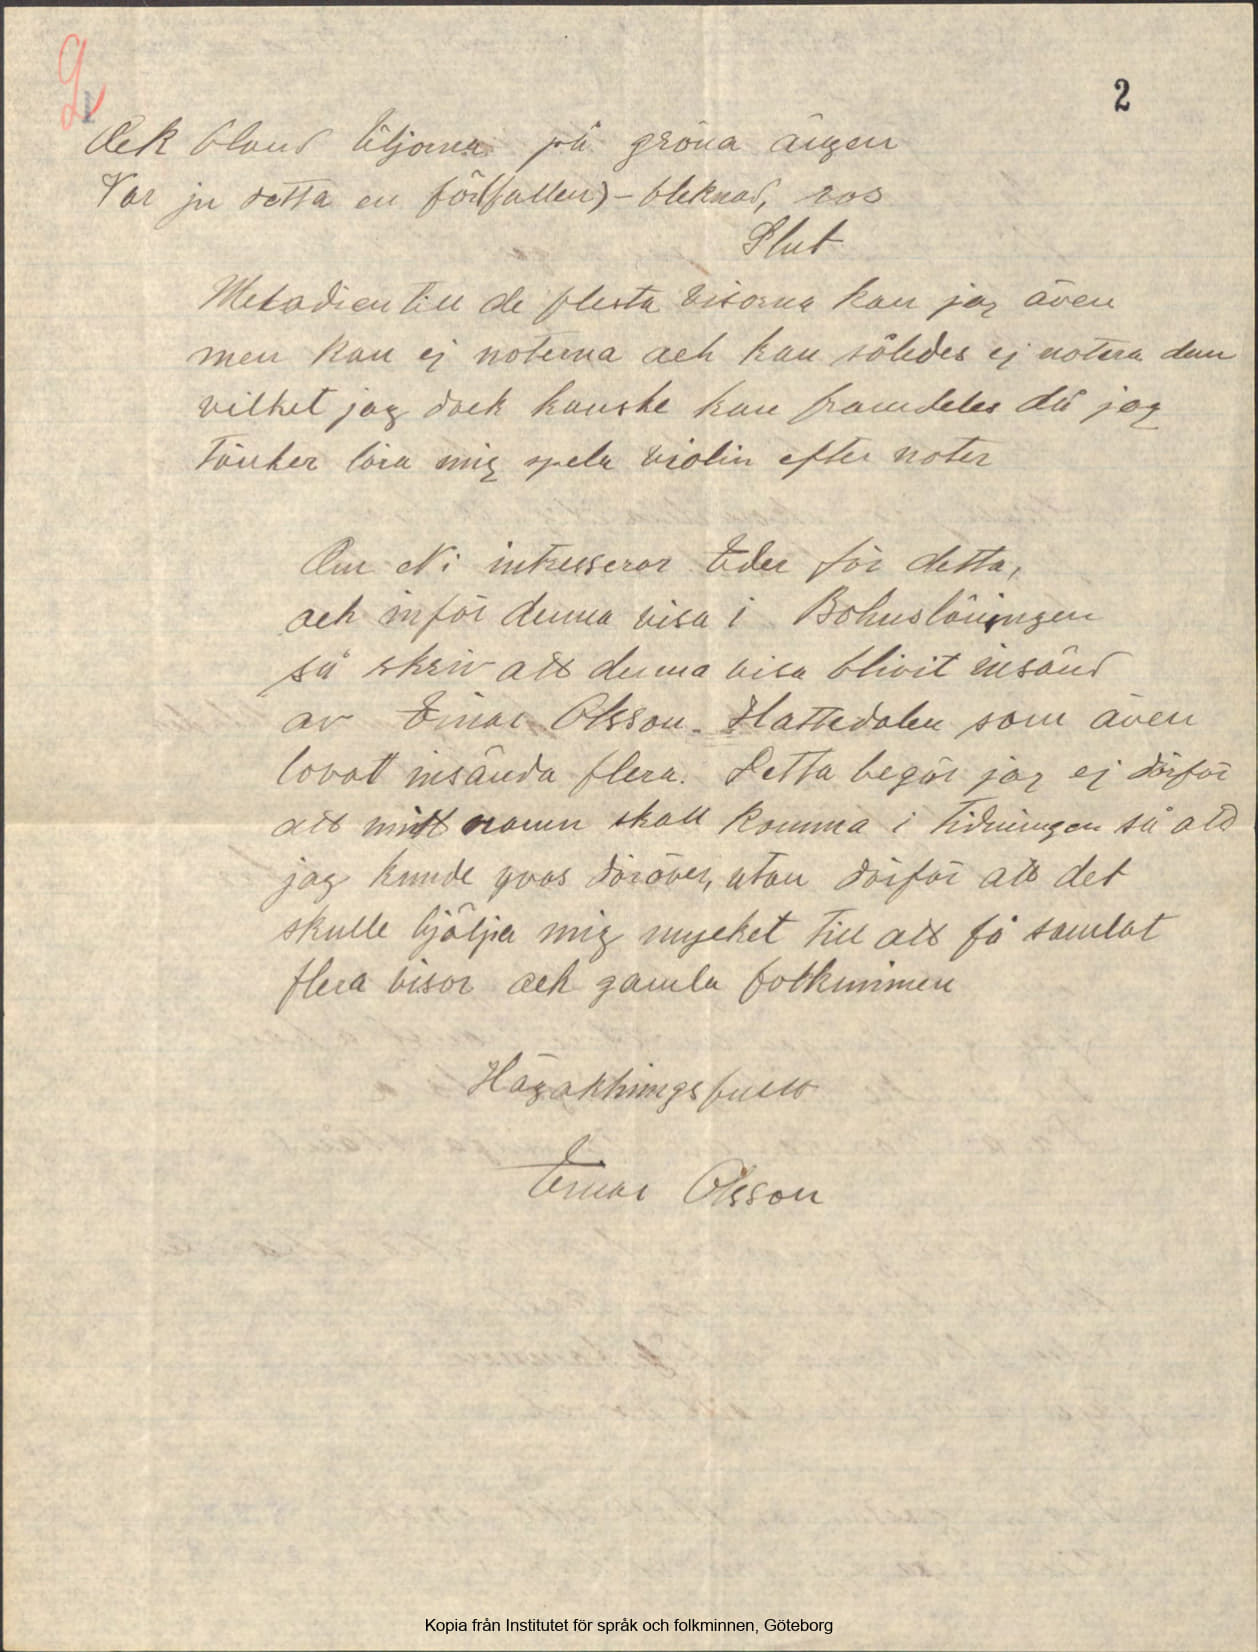 2
2
Ock bland liljorna på gröna ängen
Var ju detta en för(fallen) - bleknad, ros
Slut
Melodien till de flesta visorna kan jag även
men kan ej noterna och kan således ej notera dem
vilket jag dock kanske kan framdeles då jag
tänker lära mig spela violin efter noter
Om Ni intresserar Eder för detta,
och inför denna visa i Bohusläningen
så skriv att denna visa blivit insänd
av Einar Olsson. Hattedalen som även
lovat insända flera. Detta begär jag ej därför
att mitt namn skall komma i tidningen så att
jag kunde yvas däröver, utan därför att det
skulle hjälpa mig mycket till att få samlat
flera visor och gamla folkminnen
Högaktningsfullt
Einar Olsson
Kopia från Institutet för språk och folkminnen, Göteborg